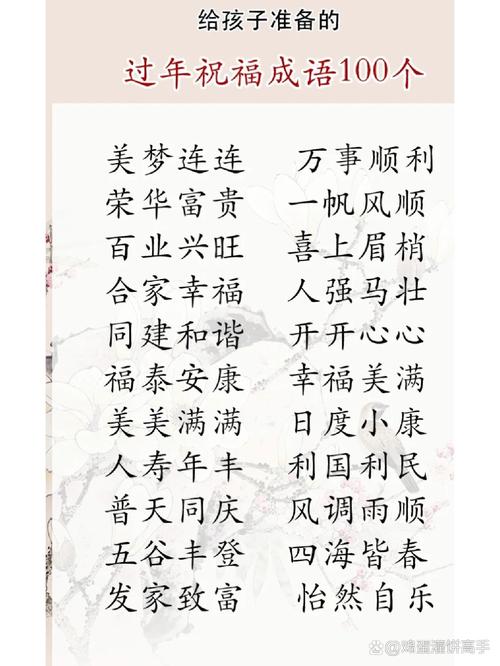 给孩子准备的
过年祝福成语100个
美梦连连 万事顺利
荣华富贵 一帆风顺
百业兴旺 喜上眉梢
合家幸福 人强马壮
同建和谐 开开心心
福泰安康 幸福美满
美美满满 日度小康
人寿年丰 利国利民
普天同庆 风调雨顺
五谷丰登 四海皆春
发家致富 怡然自乐
@鸡蛋灌饼高手